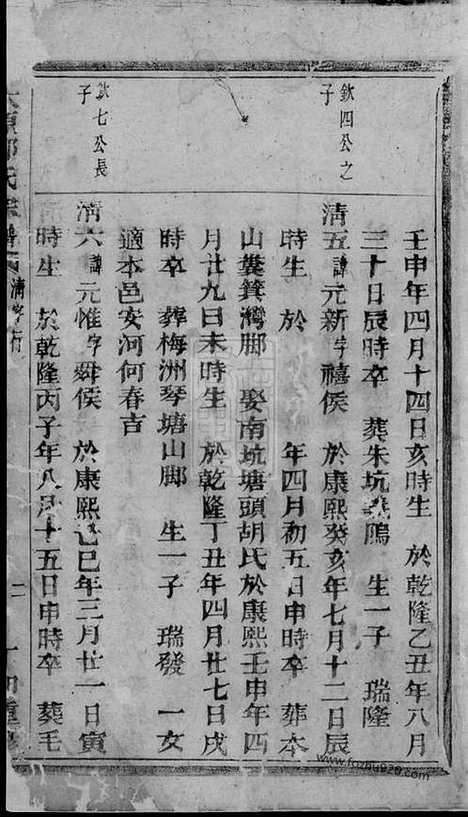 壬申年四月十四日亥時生 於乾隆乙丑年八月
三十日辰時卒 葬朱坑 鵰 生一子 瑞隆
欽四公之
子
清五諱元新字禧侯 於康熙癸亥年七月十二日辰
時生 於 年四月初五日申時卒 葬本
山糞箕灣脚 娶南坑塘頭胡氏於康熙壬申年四
月廿九日未時生 於乾隆丁丑年四月廿七日戌
時卒 葬梅洲琴塘山脚 生一子 瑞發 一女
適本邑安河何春吉
欽七公長
子
清六諱元惟字舜侯 於康熙己巳年三月廿一日寅
時生 於乾隆丙子年八月十五日申時卒 葬毛
氏宗譜 清字行
www.fozhu920.com